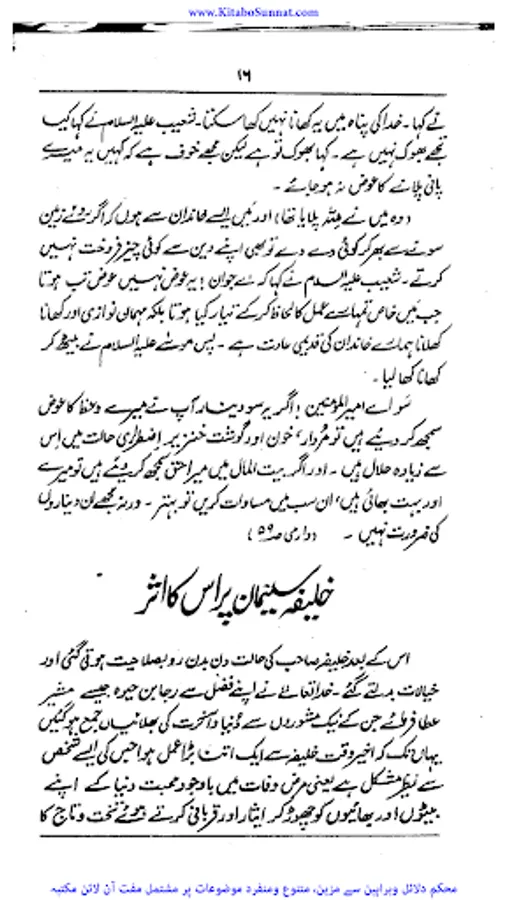 www.KitaboSunnat.com
۱۶
نے کہا۔ خدا کی پناہ میں یہ کھانا نہیں کھا سکتا۔ شعیب علیہ السلام نے کہا کیا
تجھے بھوک نہیں ہے۔ کہا بھوک تو ہے لیکن مجھے خوف ہے کہ کہیں یہ میرے
پانی پلانے کا عوض نہ ہو جائے۔
(وہ میں نے للہ پلایا تھا) اور میں ایسے خاندان سے ہوں کہ اگر روئے زمین
سونے سے بھر کر کوئی دے دے تو بھی اپنے دین سے کوئی چیز فروخت نہیں
کرتے۔ شعیب علیہ السلام نے کہا کہ اے جوان! یہ عوض نہیں عوض تب ہوتا
جب میں خاص تمہارے عمل کا لحاظ کر کے تیار کیا ہوتا بلکہ مہمان نوازی اور کھانا
کھلانا ہمارے خاندان کی قدیمی عادت ہے۔ پس موسٰے علیہ السلام نے بیٹھ کر
کھانا کھا لیا۔
سو اے امیرالمؤمنین! اگر یہ سو دینار آپ نے میرے وعظ کا عوض
سمجھ کر دیئے ہیں تو مردار، خون اور گوشت خنزیر اضطراری حالت میں اس
سے زیادہ حلال ہیں۔ اور اگر بیت المال میں میرا حق سمجھ کر دیئے ہیں تو میرے
اور بہت بھائی ہیں، ان سب میں مساوات کریں تو بہتر۔ ورنہ مجھے ان دیناروں
کی ضرورت نہیں۔ (دارمی صہ ۵۹)
خلیفہ سلیمان پر اس کا اثر
اس کے بعد خلیفہ صاحب کی حالت دن بدن رو بصلاحیت ہوتی گئی اور
خیالات بدلتے گئے۔ خدا تعالےٰ نے اپنے فضل سے رجا بن حیوہ جیسے مشیر
عطا فرمائے جن کے نیک مشوروں سے دُنیا و آخرت کی بھلائیاں جمع ہو گئیں
یہاں تک کہ اخیر وقت خلیفہ سے ایک اتنا بڑا عمل ہوا جس کی ایسے شخص
سے نظیر مشکل ہے یعنی مرض وفات میں باوجود محبت دنیا کے اپنے
بیٹوں اور بھائیوں کو چھوڑ کر ایثار اور قربانی کرتے ہوئے تخت و تاج کا
محکم دلائل وبراہین سے مزین، متنوع ومنفرد موضوعات پر مشتمل مفت آن لائن مکتبہ